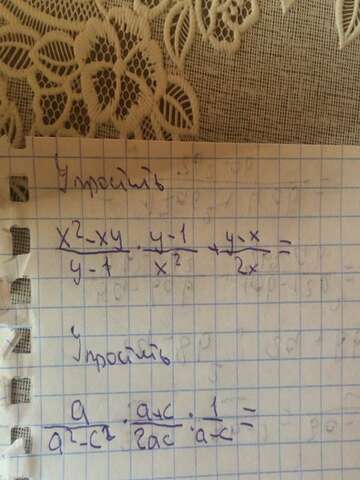 Упростить
x²-xy/y-1 · y-1/x² · y-x/2x =
Упростить
a/a²-c² : a+c/2ac · 1/a-c =